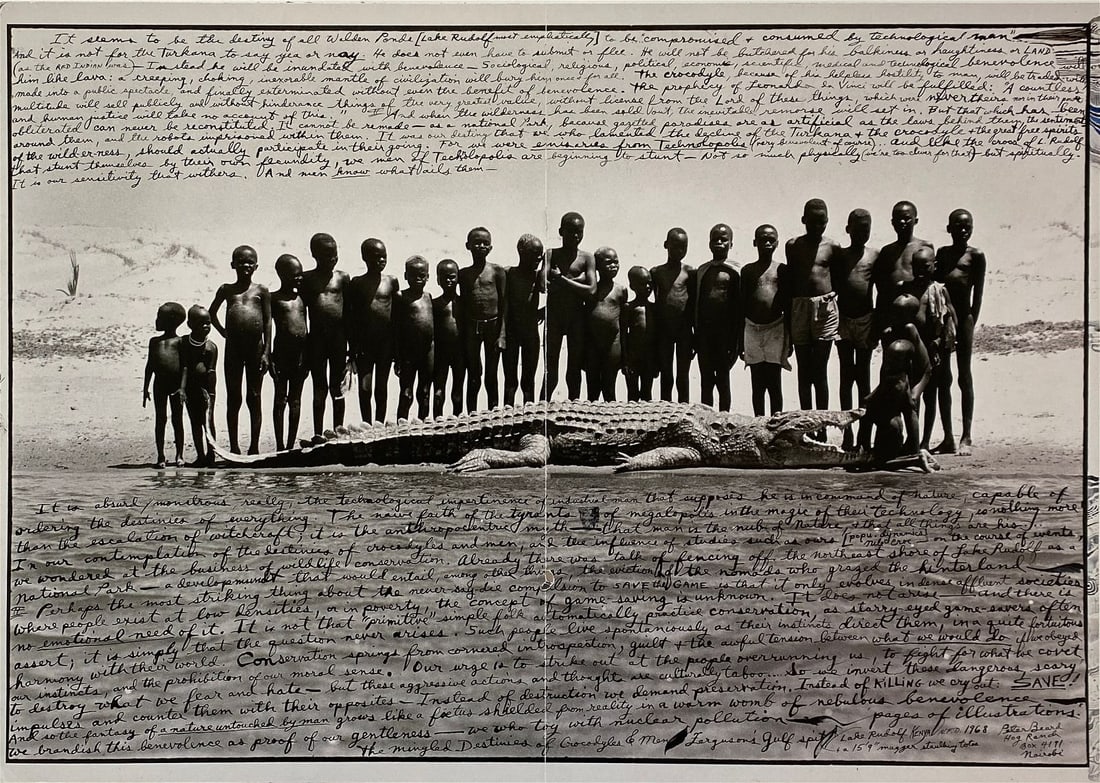 It seems to be the destiny of all Walden Ponds [Lake Rudolf most emphatically] to be "compromised & consumed by technological man"
And it is not for the Turkana to say yia or nay. He does not even have to submit or flee. He will not be butchered for his balkiness or haughtiness or LAND
(as the RED INDIAN was) — Instead he will be inundated with benevolence — Sociological, religious, political, economic, scientific, medical and technological benevolence will
him like lava: a creeping, choking, inexorable mantle of civilization will bury him once for all. The crocodyle, because of his helpless hostility to man, will be traded
made in a public spectacle, and finally exterminated without even the benefit of benevolence. The prophecy of Leonardo da Vinci will be fulfilled: "A countless
multitude will sell publicly and without hinderance things of the very greatest value, without license from the Lord of these things, which were never theirs nor in their power,
and human justice will take no account of this." And when the wilderness has been sold out, the inevitable remorse will set in. That which has been
obliterated can never be reconstituted. It cannot be remade — a national Park because gazetted paradises are as artificial as the laws behind them, the sentiment
around them, and the robots imprisoned within them. It was our destiny that we who lamented the decline of the Turkana & the crocodyle & the great free spirits
of the wilderness, should actually participate in their going. For we were emissaries from Technolopolis (very benevolent of course). And like the crocs of L. Rudolf
that stunt themselves by their own fecundity, we men of Technolopolis are beginning to stunt — Not so much physically (we're too clever for that) but spiritually.
It is our sensitivity that withers. And men know what ails them —
It is absurd/monstrous really — the technological impertinence of industrial man that supposes he is in command of nature, capable of
ordering the destinies of everything. The naive faith of the tyrants of megalopolis in the magic of their technology is nothing more
than the escalation of witchcraft; it is the anthropocentric myth — that man is the nub of Nature, & that all things are his.
In our contemplation of the destinies of crocodyles and men, and the influence of studies such as ours [popu. dynamics] on the course of events,
we wondered at the business of wildlife conservation. Already there was talk of fencing off the northeast shore of Lake Rudolf as a
National Park — a development that would entail, among other things the eviction of the nomads who grazed the hinterland
Perhaps the most striking thing about the never-say-die compulsion to SAVE the GAME is that it only evolves in dense affluent societies
where people exist at low densities, or in poverty, the concept of game-saving is unknown. It does not arise — and there is
no emotional need of it. It is not that "primitive" simple folk automatically practice conservation, as starry eyed game-savers often
assert; it is simply that the question never arises. Such people live spontaneously as their instincts direct them, in a quite fortuitous
harmony with their world. Conservation springs from cornered introspection, guilt & the awful tension between what we would do if we obeyed
our instincts, and the prohibition of our moral sense. Our urge is to strike out at the people overrunning us, to fight for what we covet
to destroy what we fear and hate — but these aggressive actions and thought are culturally taboo.... So we invert those dangerous, scary
impulses and counter them with their opposites — Instead of destruction we demand preservation. Instead of KILLING we cry out: SAVE!
And so the fantasy of a nature untouched by man grows like a foetus shielded from reality in a warm womb of nebulous benevolence
we brandish this benevolence as proof of our gentleness — we who toy with nuclear pollution pages of illustrations.
The Mingled Destinies of Crocodyles & Men Ferguson's Gulf spit, Lake Rudolf Kenya 1968 Peter Beard
Hog Ranch
Box 4191
Nairobi